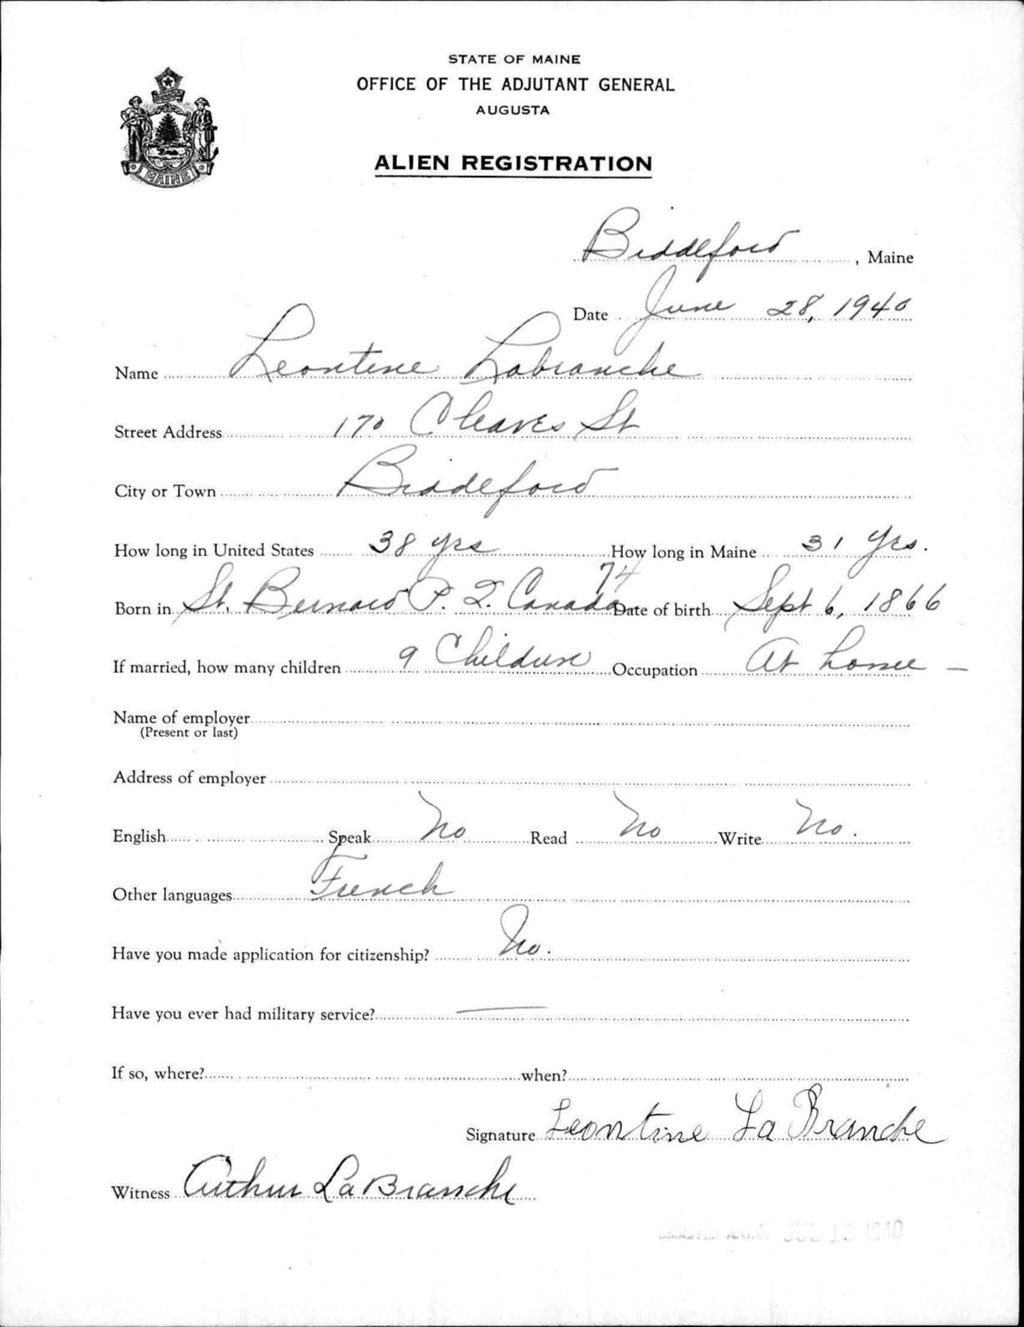 STATE OF MAINE
OFFICE OF THE ADJUTANT GENERAL
AUGUSTA
ALIEN REGISTRATION
MAINE
Biddeford, Maine
Date June 28, 1940
Name Leontine Labranche
Street Address 170 Cleaves St
City or Town Biddeford
How long in United States 38 yrs How long in Maine 31 Yrs.
74
Born in St. Bernard P. Q. Canada Date of birth Sept 6, 1866
If married, how many children 9 Children Occupation At home –
Name of employer
(Present or last)
Address of employer
English Speak No Read No Write No.
Other languages French
Have you made application for citizenship? No.
Have you ever had military service? —
If so, where? when?
Signature Leontine La Branche
Witness Arthur LaBranche
JUL 12 1940